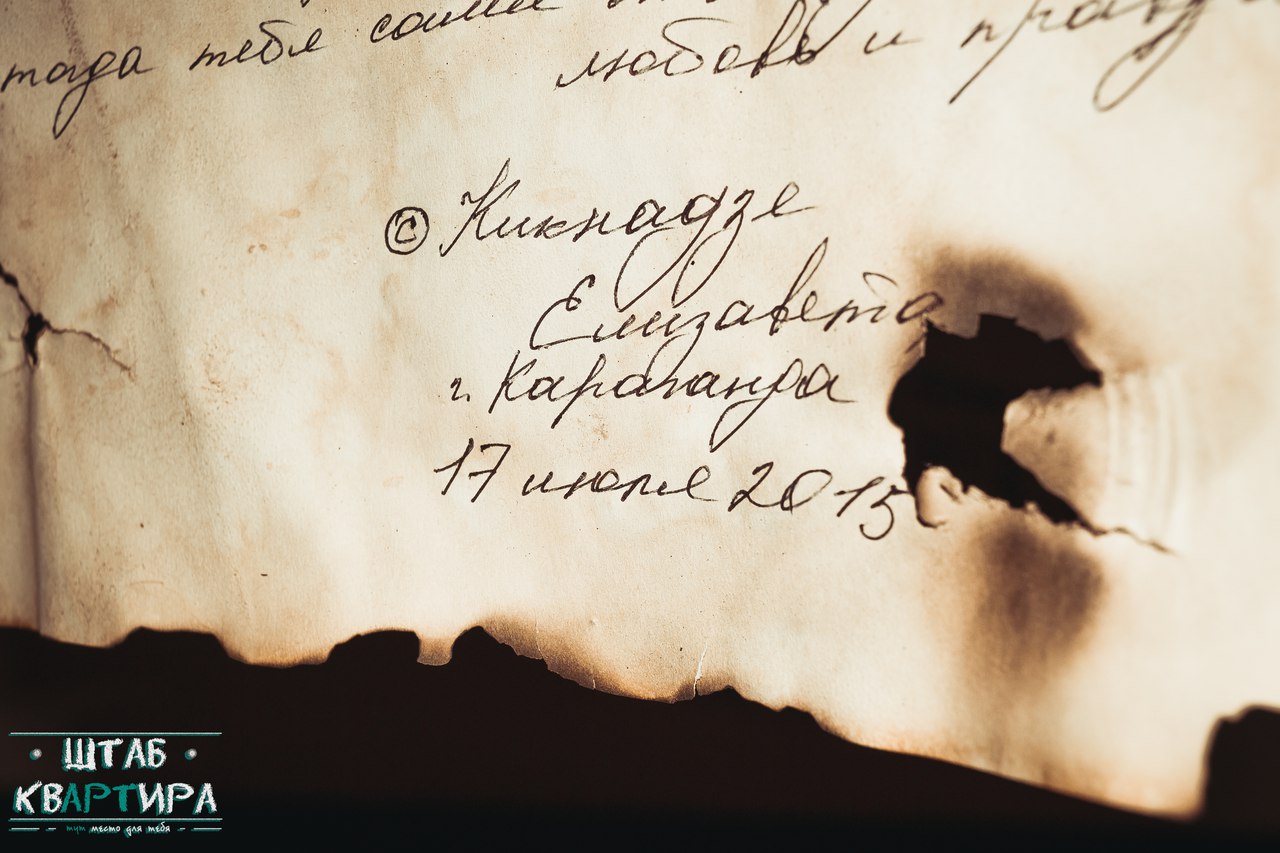 тогда тебя сами
любовь и
© Кикнадзе
Елизавета
г. Караганда
17 июля 2015
• ШТАБ •
КВАРТИРА
тут место для тебя